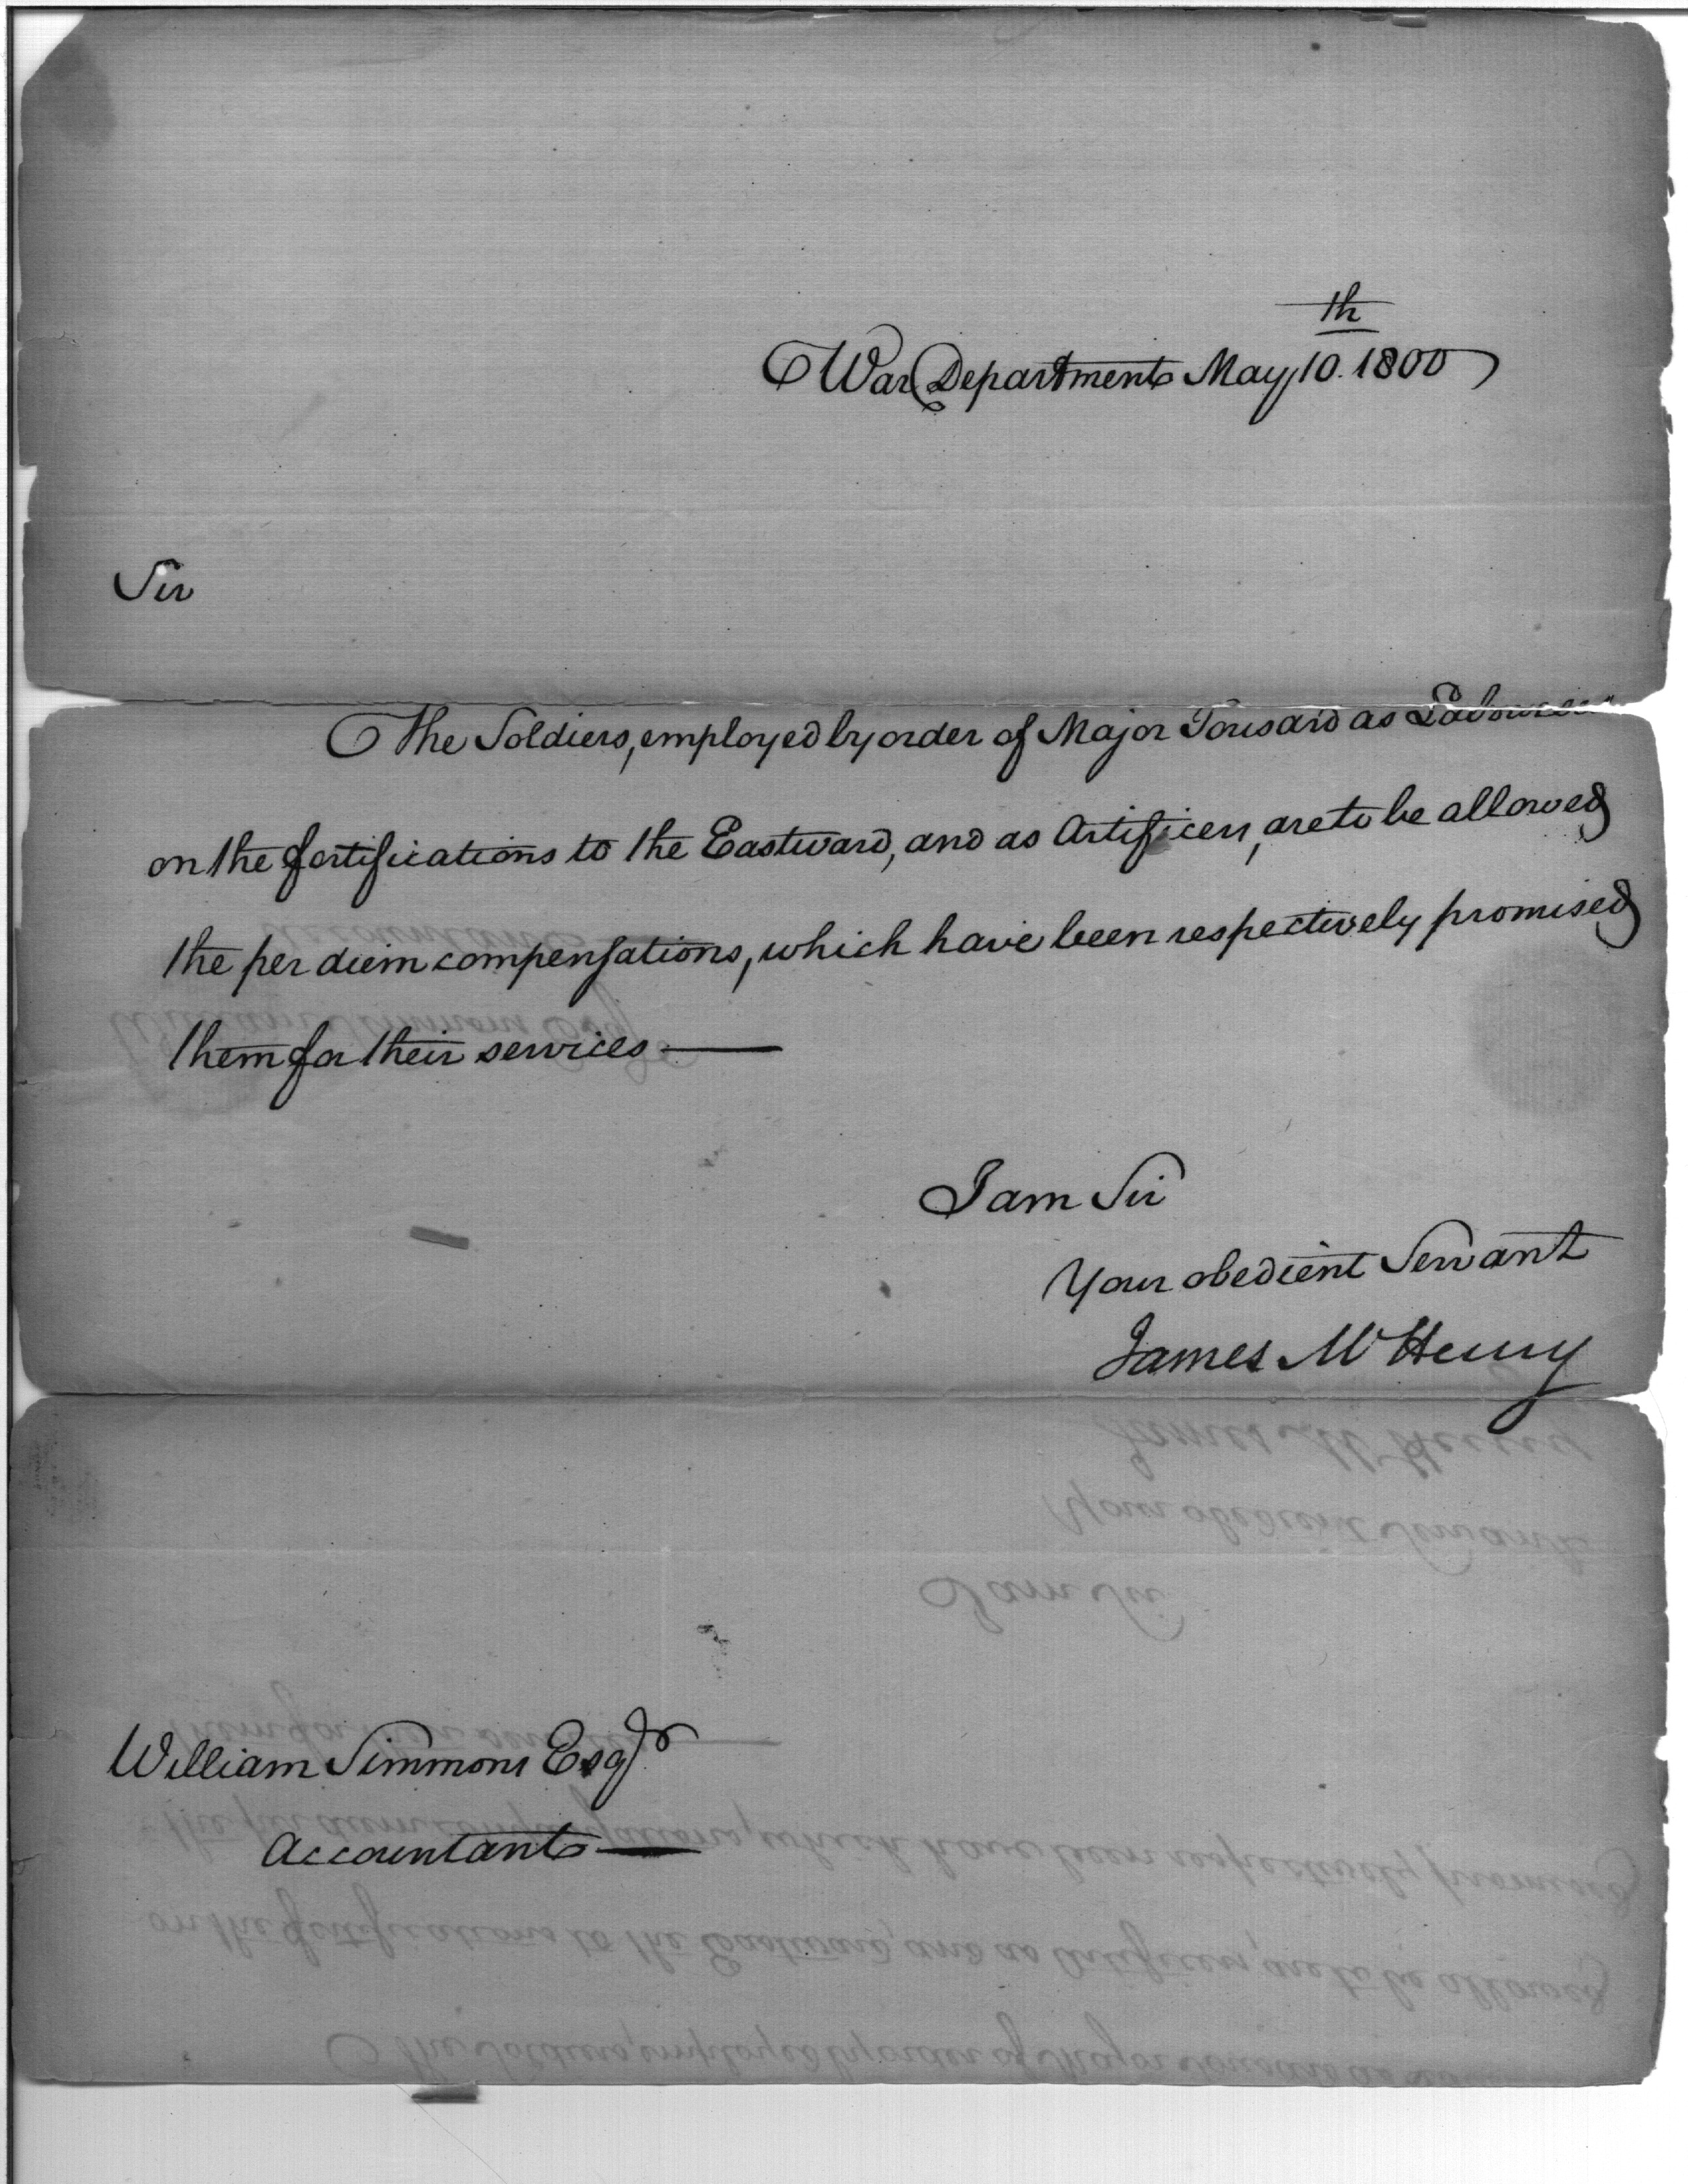 War Department May 10th. 1800
Sir
The Soldiers, employed by order of Major Tousard as Labourers
on the fortifications to the Eastward, and as Artificers, are to be allowed
the per diem compensations, which have been respectively promised
them for their services —
I am Sir
Your obedient Servant
James McHenry
William Simmons Esqr.
Accountant —